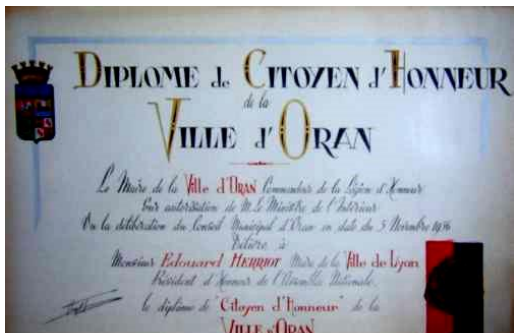 DIPLOME de CITOYEN d'HONNEUR
de la
VILLE d'ORAN
Le Maire de la Ville d'ORAN Commandeur de la Légion d'Honneur
Sur autorisation de M. Le Ministre de l'Intérieur
Vu la délibération du Conseil Municipal d'Oran en date du 5 Novembre 1956
Délivre à
Monsieur Edouard HERRIOT Maire de la Ville de Lyon
Président d'Honneur de l'Assemblée Nationale,
le diplôme de "Citoyen d'Honneur" de la
VILLE d'ORAN